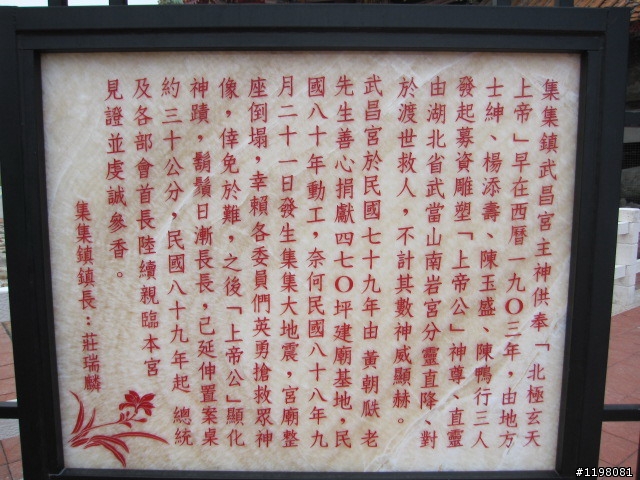 集集鎮武昌宮主神供奉「北極玄天
上帝」早在西曆一九〇三年，由地方
士紳、楊添壽、陳玉盛、陳鴨行三人
發起募資雕塑「上帝公」神尊、直靈
由湖北省武當山南岩宮分靈直降、對
於渡世救人，不計其數神威顯赫。
武昌宮於民國七十九年由黃朝猒老
先生善心捐獻四七〇坪建廟基地，民
國八十年動工，奈何民國八十八年九
月二十一日發生集集大地震，宮廟整
座倒塌，幸賴各委員們英勇搶救眾神
像，倖免於難，之後「上帝公」顯化
神蹟，鬍鬚日漸長長，已延伸置案桌
約三十公分，民國八十九年起　總統
及各部會首長陸續親臨本宮
見證並虔誠參香。
集集鎮鎮長：莊瑞麟
#1198081